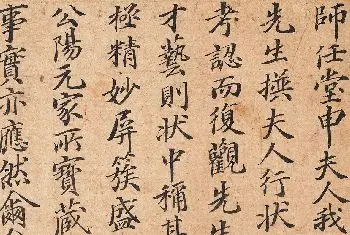 師任堂申夫人我
先生撰夫人行狀
考認而復觀先生
才藝則狀中稱其
極精妙屏簇盛
公陽元家所寶藏
事實亦應然爾